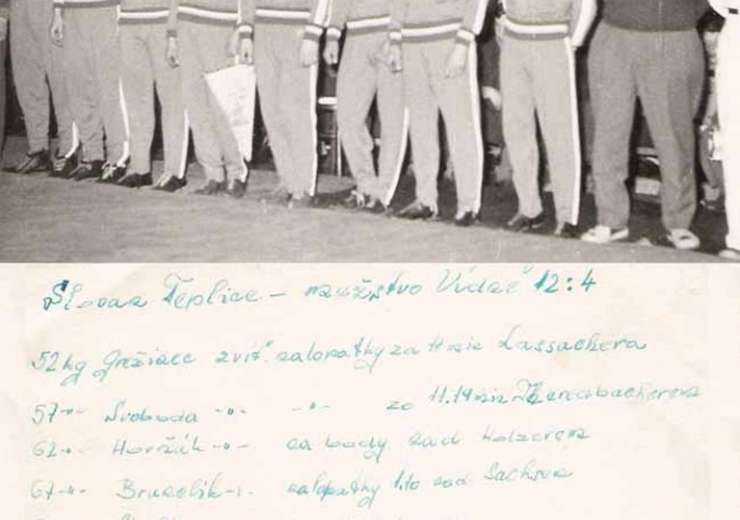 Slovan Teplice - mužstvo Vídně 12:4
52 kg Grežiacc zvíť. na lopatky za 11 min Lassachera
57 -"- Svoboda -"- -"- za 11.14 min
62 -"- Horžák -"- na body nad Holzerem
67 -"- Bruzelik -"- na lopatky 1.10 nad Sachsem